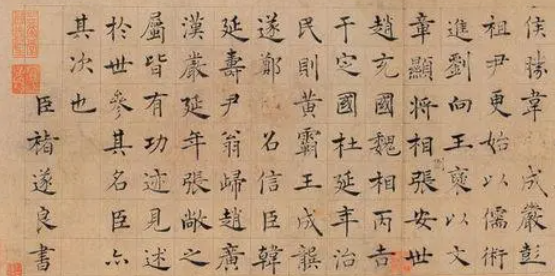 侯勝韋 成嚴彭
祖尹更始以儒術
進劉向王褒以文
章顯將相張安世
趙充國魏相丙吉
于定國杜延年治
民則黃霸王成龔
遂鄭 名信臣韓
延壽尹翁歸趙廣
漢嚴延年張敞之
屬皆有功迹見述
於世參其名臣亦
其次也
臣褚遂良書